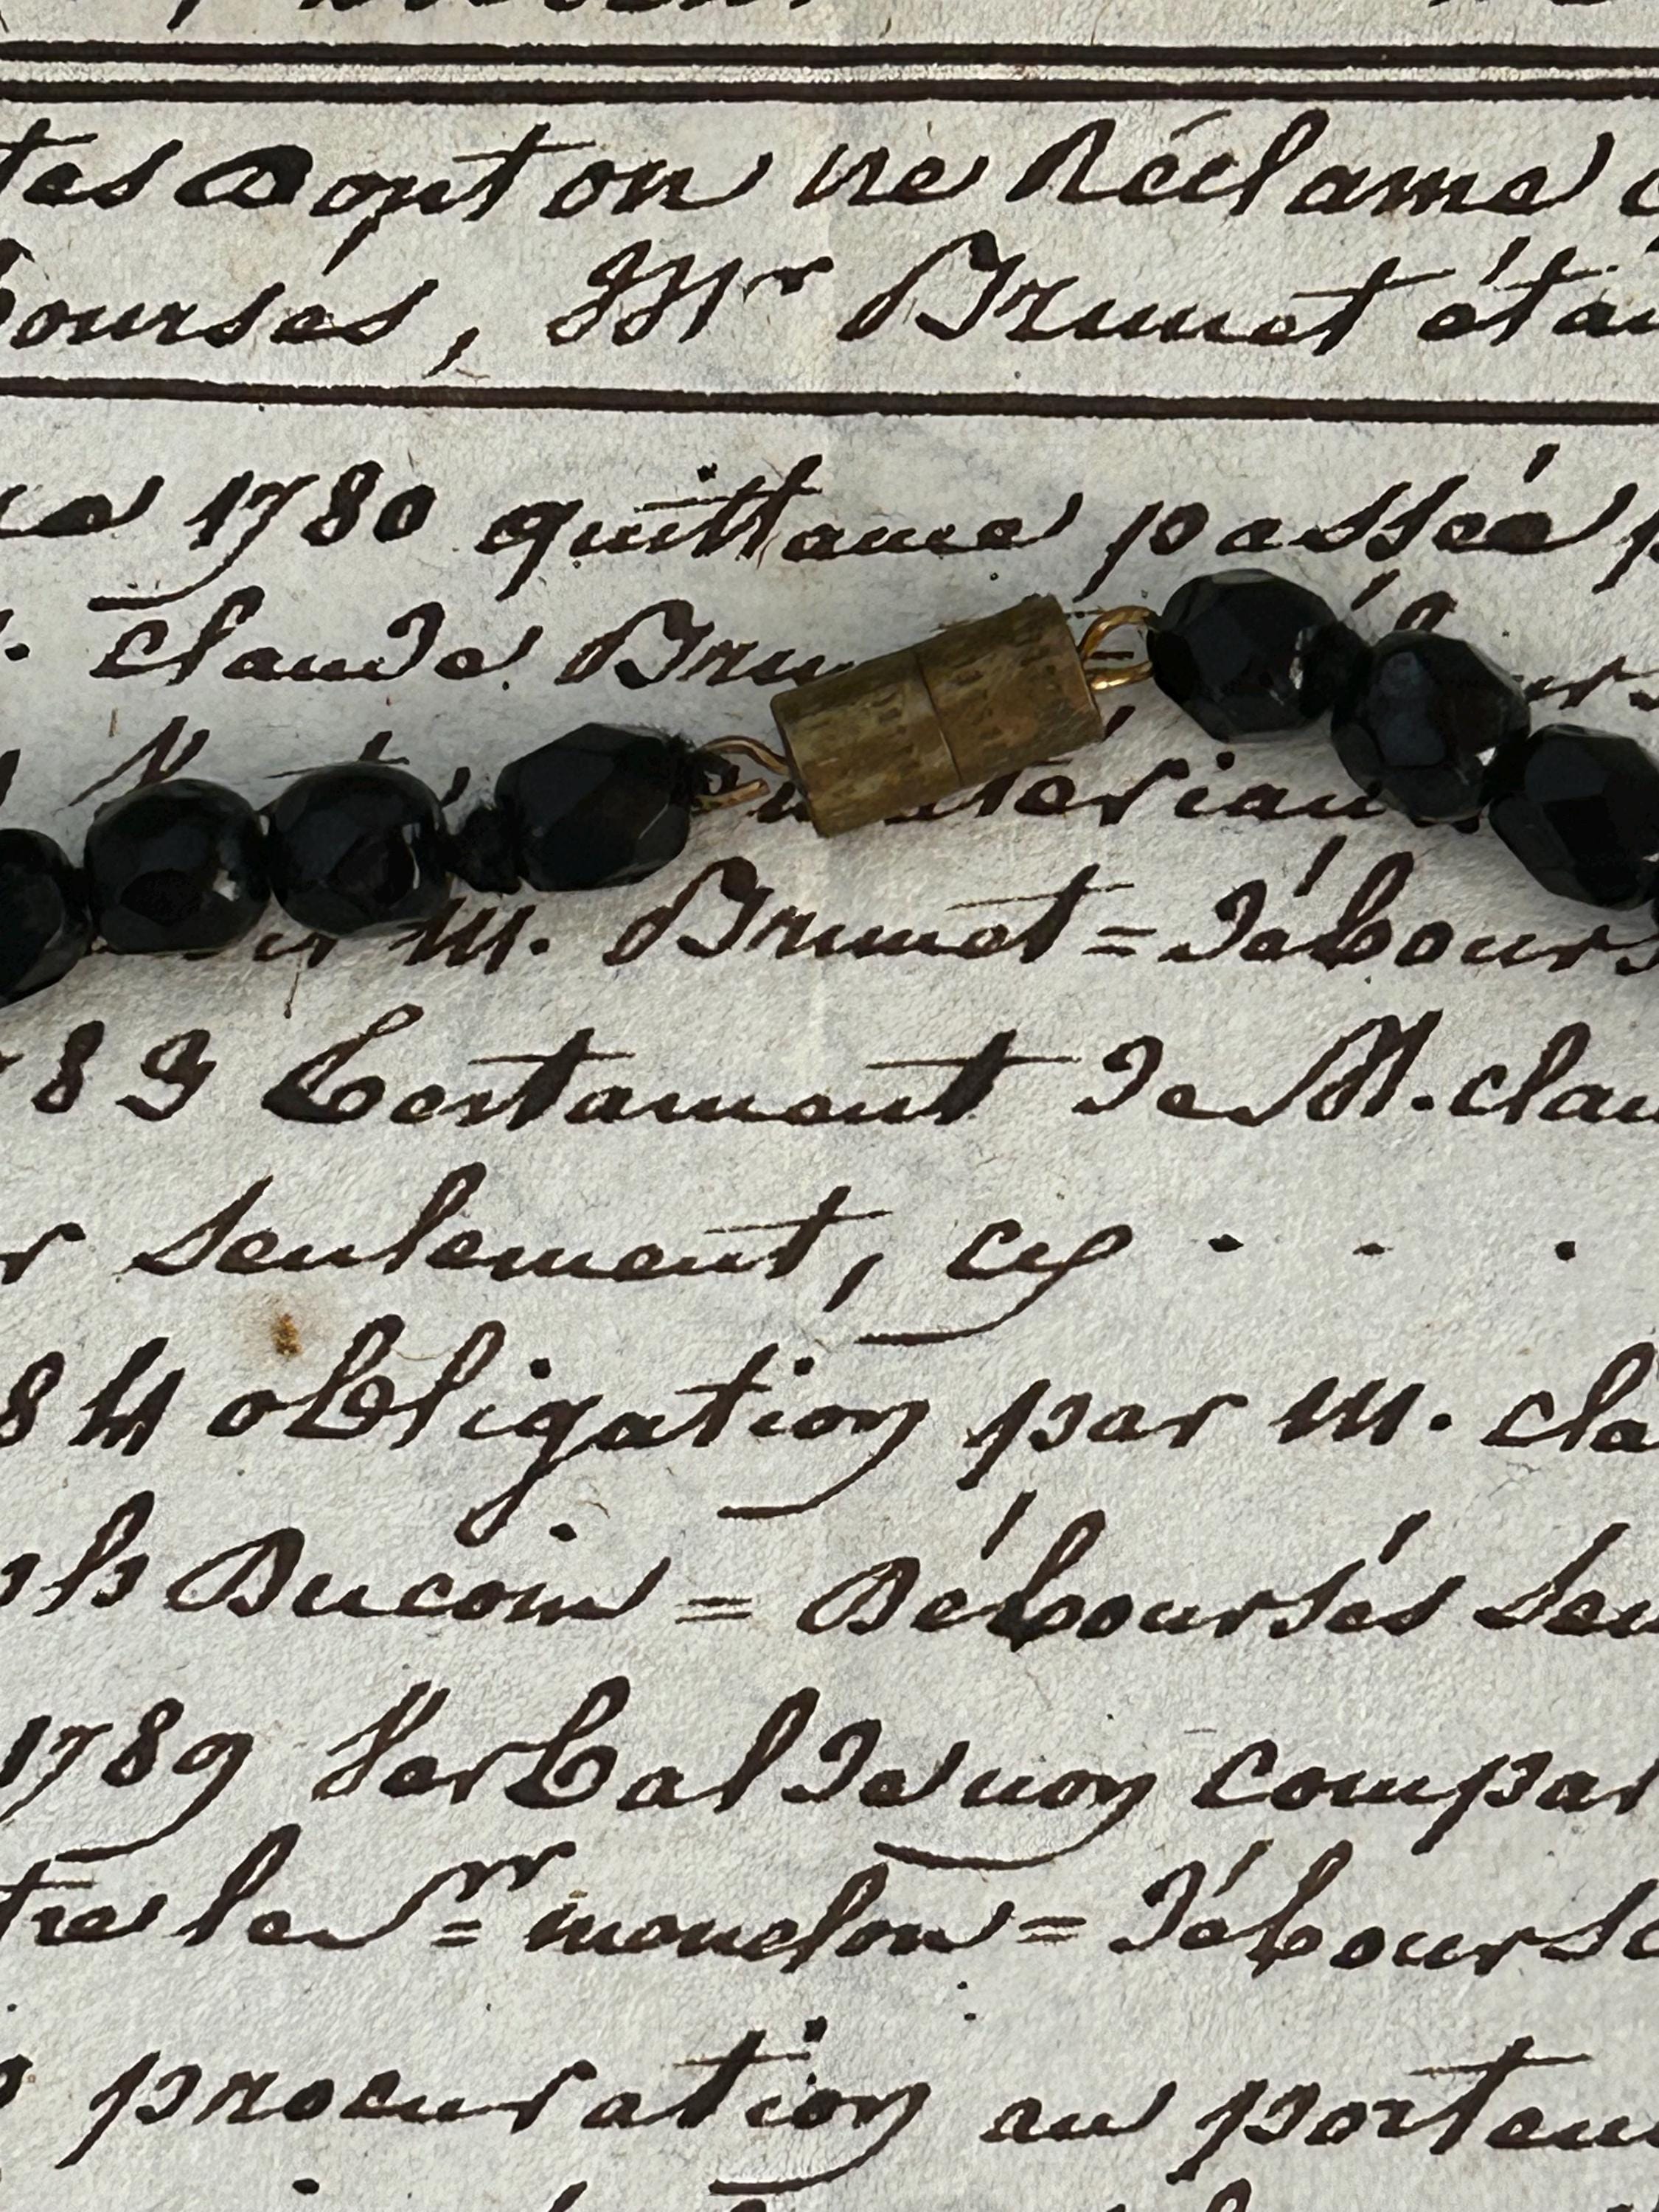 tes dont on ne Réclame
boursés, Mr Brunet étan
1780 quittance passée p
Claude Bru
M. Brunet = débours
83 testament de M. Clau
r seulement, cy . . .
84 obligation par M. Cla
Ducoin = Déboursés seu
1789 Verbal de non compar
tre le Sr = mouclon = débourse
procuration au porteu